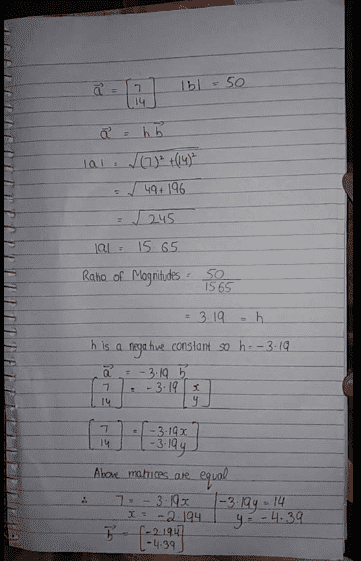 a⃗ = [7 14] |b| = 50
a⃗ = h b⃗
|a| = √(7)² + (14)²
= √ 49 + 196
= √ 245
|a| = 15 65
Ratio of Magnitudes = 50 / 15 65
= 3 19 = h
h is a negative constant so h = -3·19
a⃗ = -3·19 b⃗
[7 14] = -3·19 [x y]
[7 14] = [-3·19x -3·19y]
Above matrices are equal
∴ 7 = -3·19x | -3·19y = 14
x = -2 194 | y = -4·39
b⃗ = [-2194 -4·39]